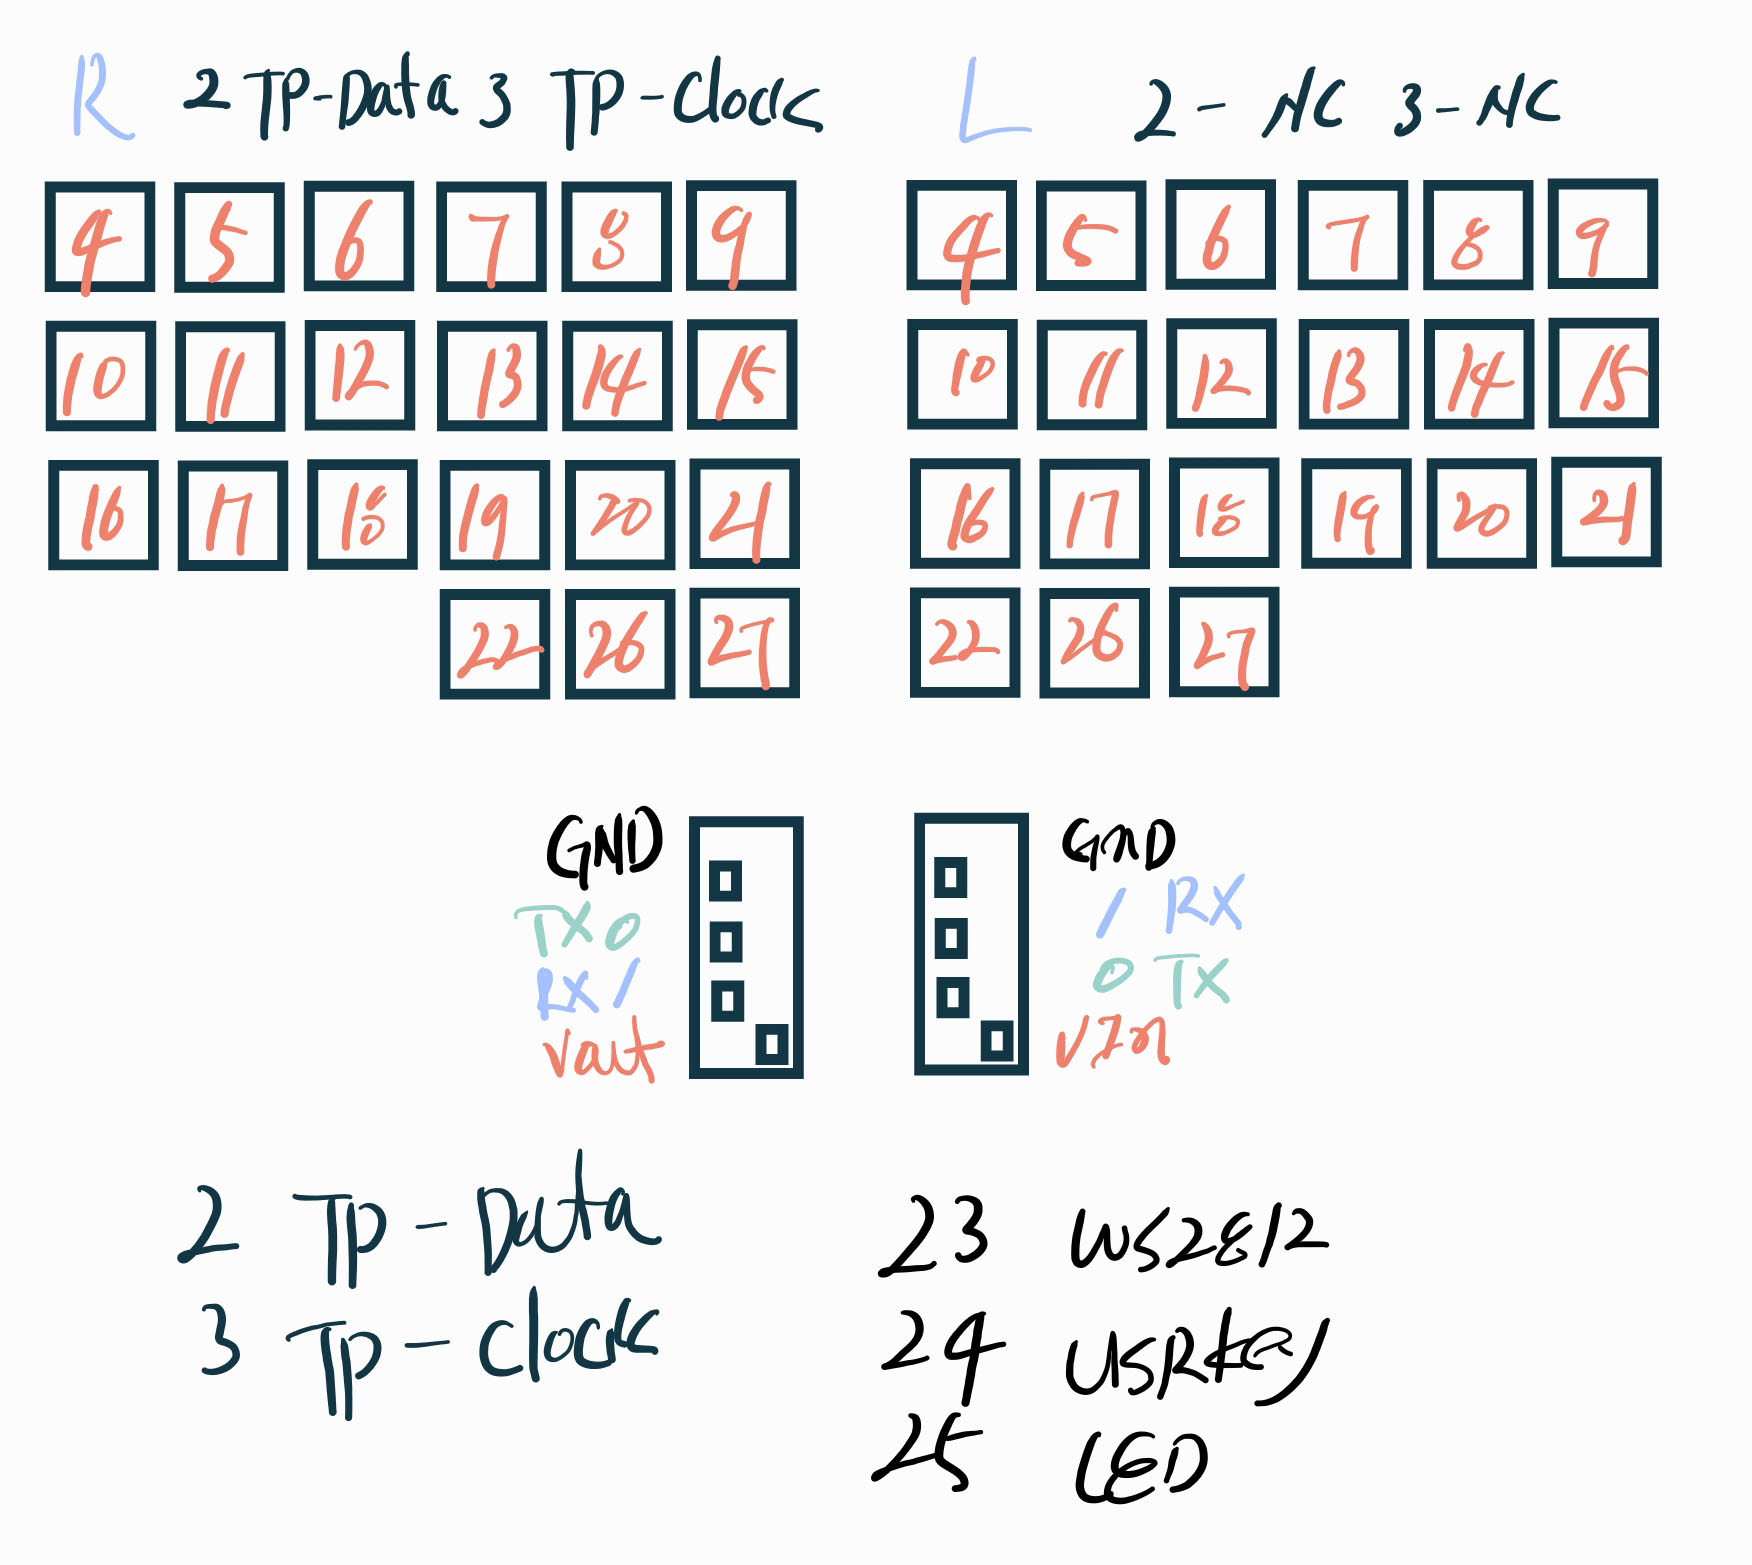 R 2 TP-Data 3 TP-Clock
L 2- NC 3-NC
4 5 6 7 8 9
10 11 12 13 14 15
16 17 18 19 20 21
22 26 27
4 5 6 7 8 9
10 11 12 13 14 15
16 17 18 19 20 21
22 26 27
GND
TX 0
RX 1
Vout
GND
1 RX
0 TX
VIn
2 TP-Data
3 TP-Clock
23 WS2812
24 USRkey
25 LED